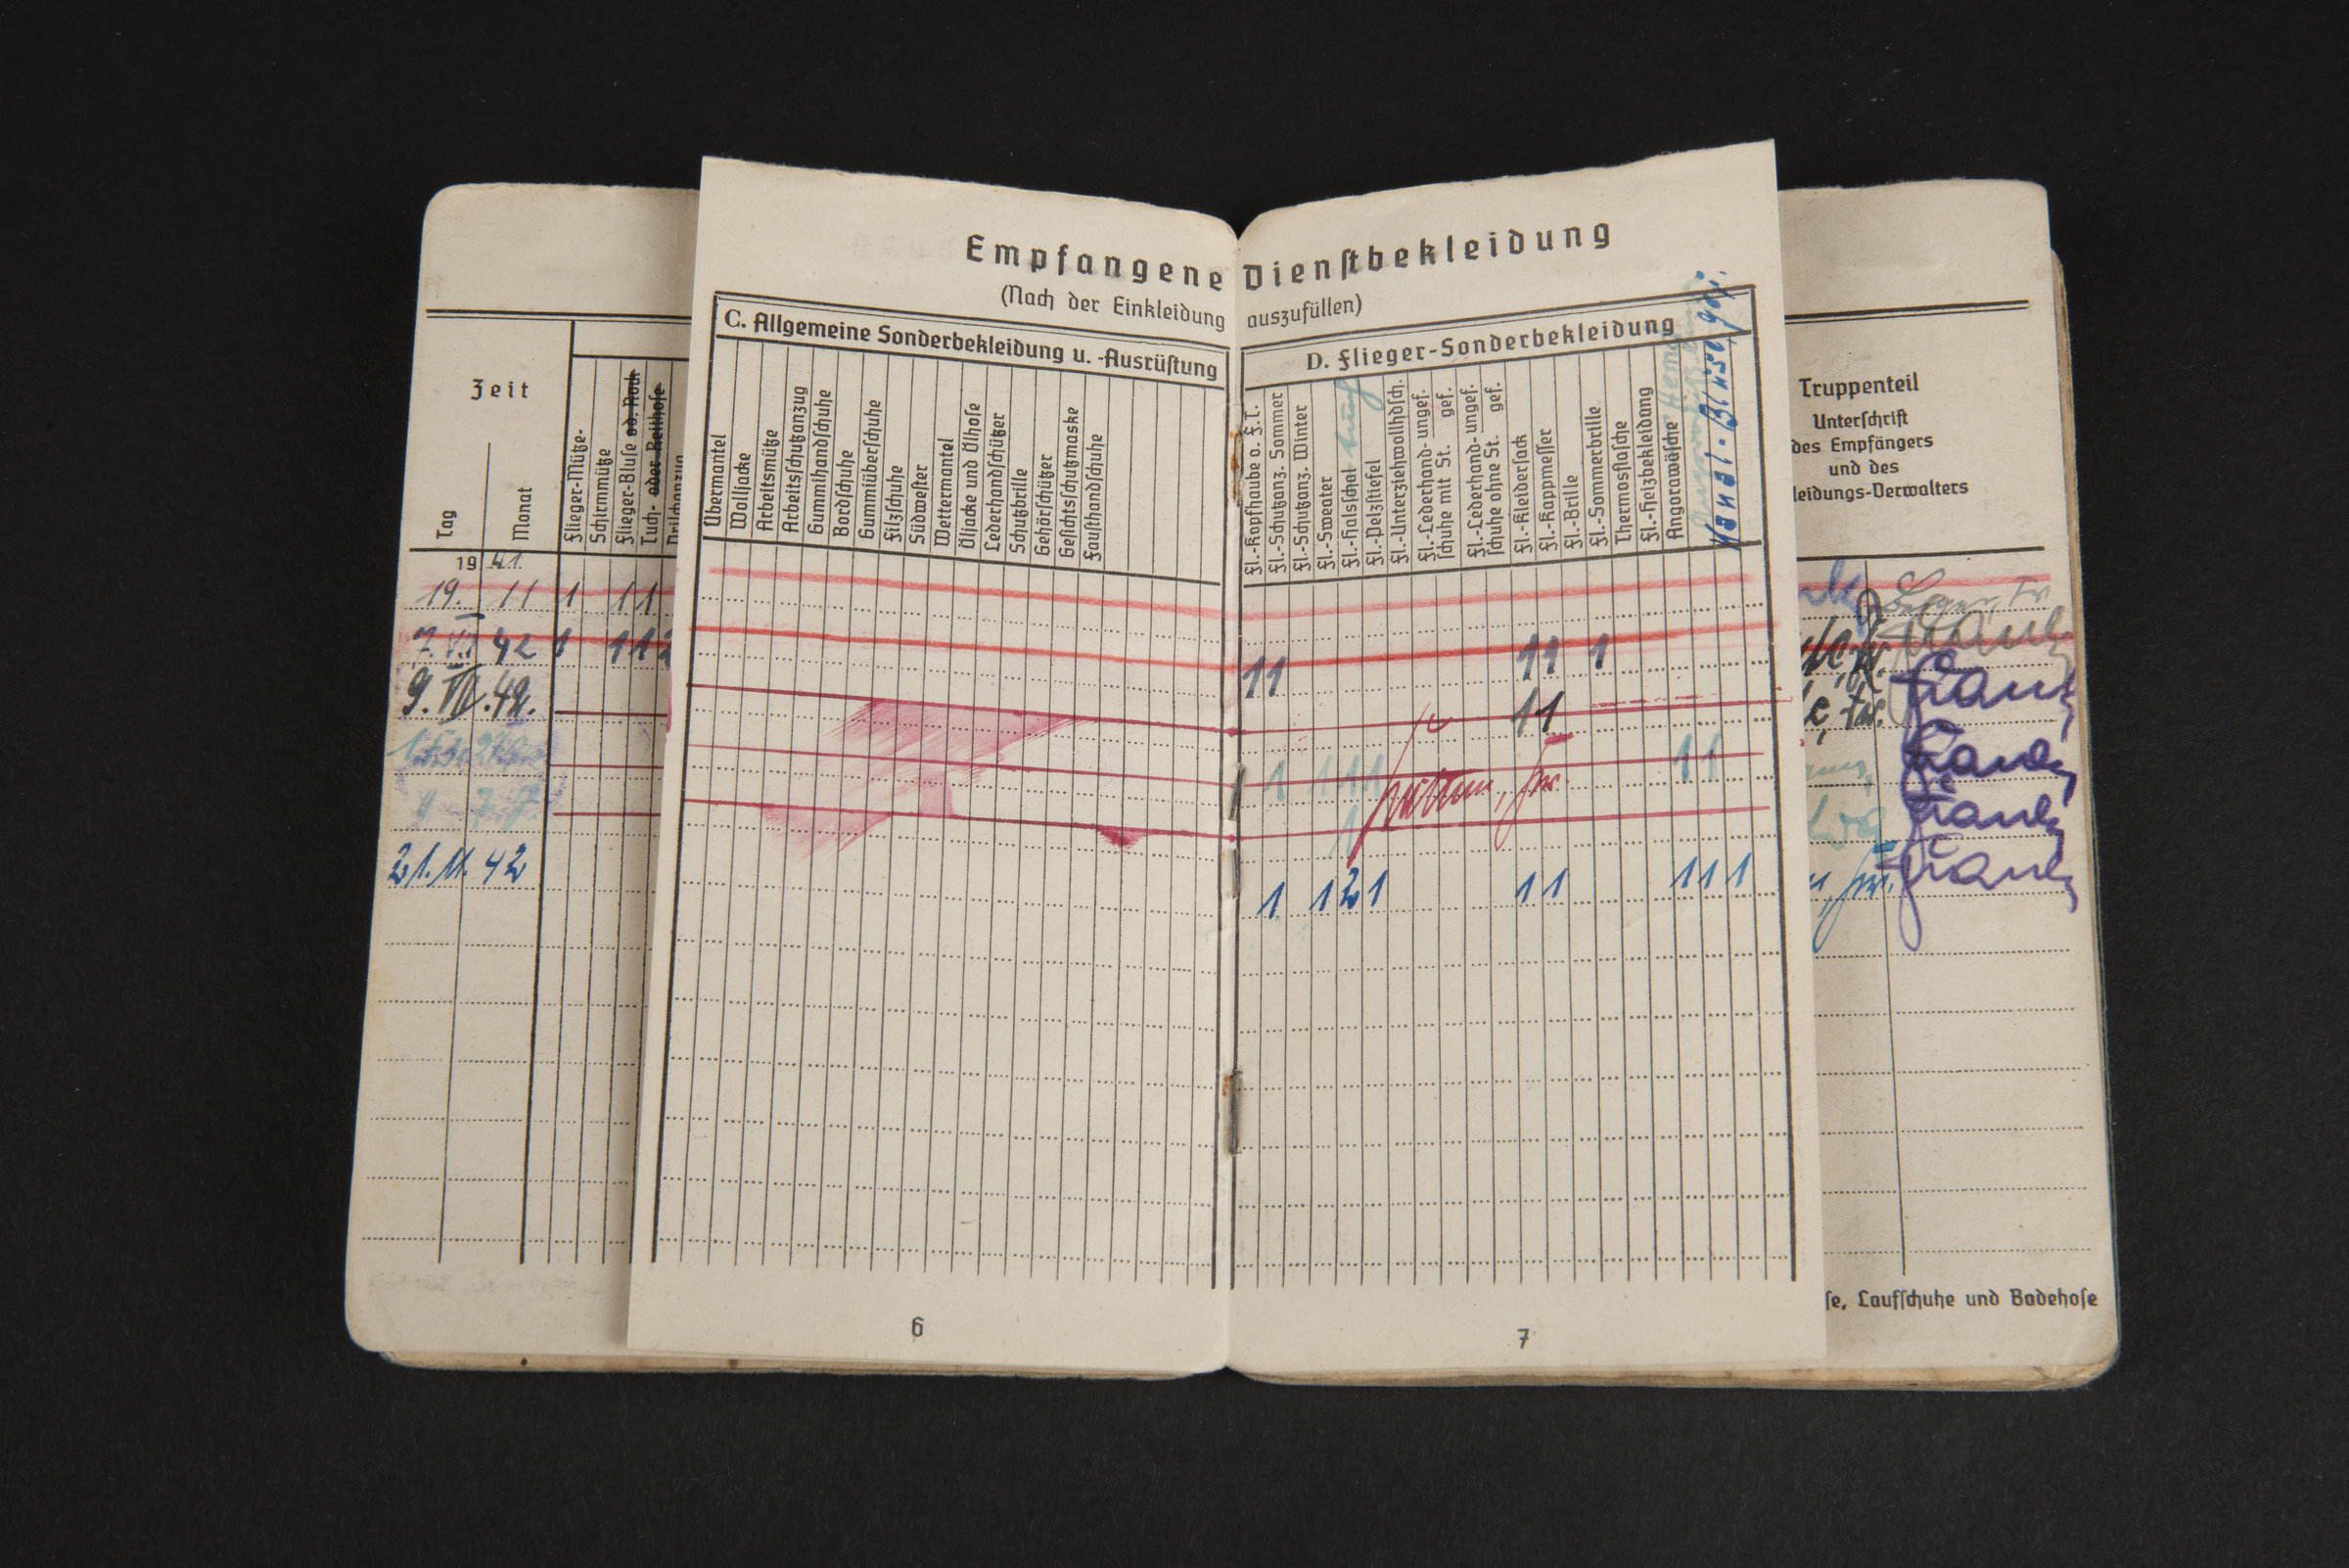 Empfangene Dienstbekleidung
(Nach der Einkleidung auszufüllen)
Zeit
Tag
Monat
Flieger-Mütze-
Schirmmütze
Flieger-Bluse od. Rock
Tuch- oder Reithose
Drillichanzug
C. Allgemeine Sonderbekleidung u. -Ausrüstung
Übermantel
Wolljacke
Arbeitsmütze
Arbeitsschutzanzug
Gummihandschuhe
Bordschuhe
Gummiüberschuhe
Filzschuhe
Südwester
Wettermantel
Öljacke und Ölhose
Lederhandschützer
Schutzbrille
Gehörschützer
Gesichtsschutzmaske
Fausthandschuhe
D. Flieger-Sonderbekleidung
Fl.-Kopfhaube o. F.T.
Fl.-Schutzanz. Sommer
Fl.-Schutzanz. Winter
Fl.-Sweater
Fl.-Halsschal
Fl.-Pelzstiefel
Fl.-Unterziehwollhdsch.
Fl.-Lederhand- ungef.
schuhe mit St. gef.
Fl.-Lederhand- ungef.
schuhe ohne St. gef.
Fl.-Kleidersack
Fl.-Kappmesser
Fl.-Brille
Fl.-Sommerbrille
Thermosflasche
Fl.-Heizbekleidung
Angorawäsche
Truppenteil
Unterschrift
des Empfängers
und des
leidungs-Verwalters
19 41
19. 11 1 1 1
7. VI. 42 1 1 1 2
1 1 1 1 1
9. VII. 42.
1 1
1 1 1 1 1 1
1
21. 11. 42
1 1 2 1 1 1 1 1 1
se, Laufschuhe und Badehose
6
7